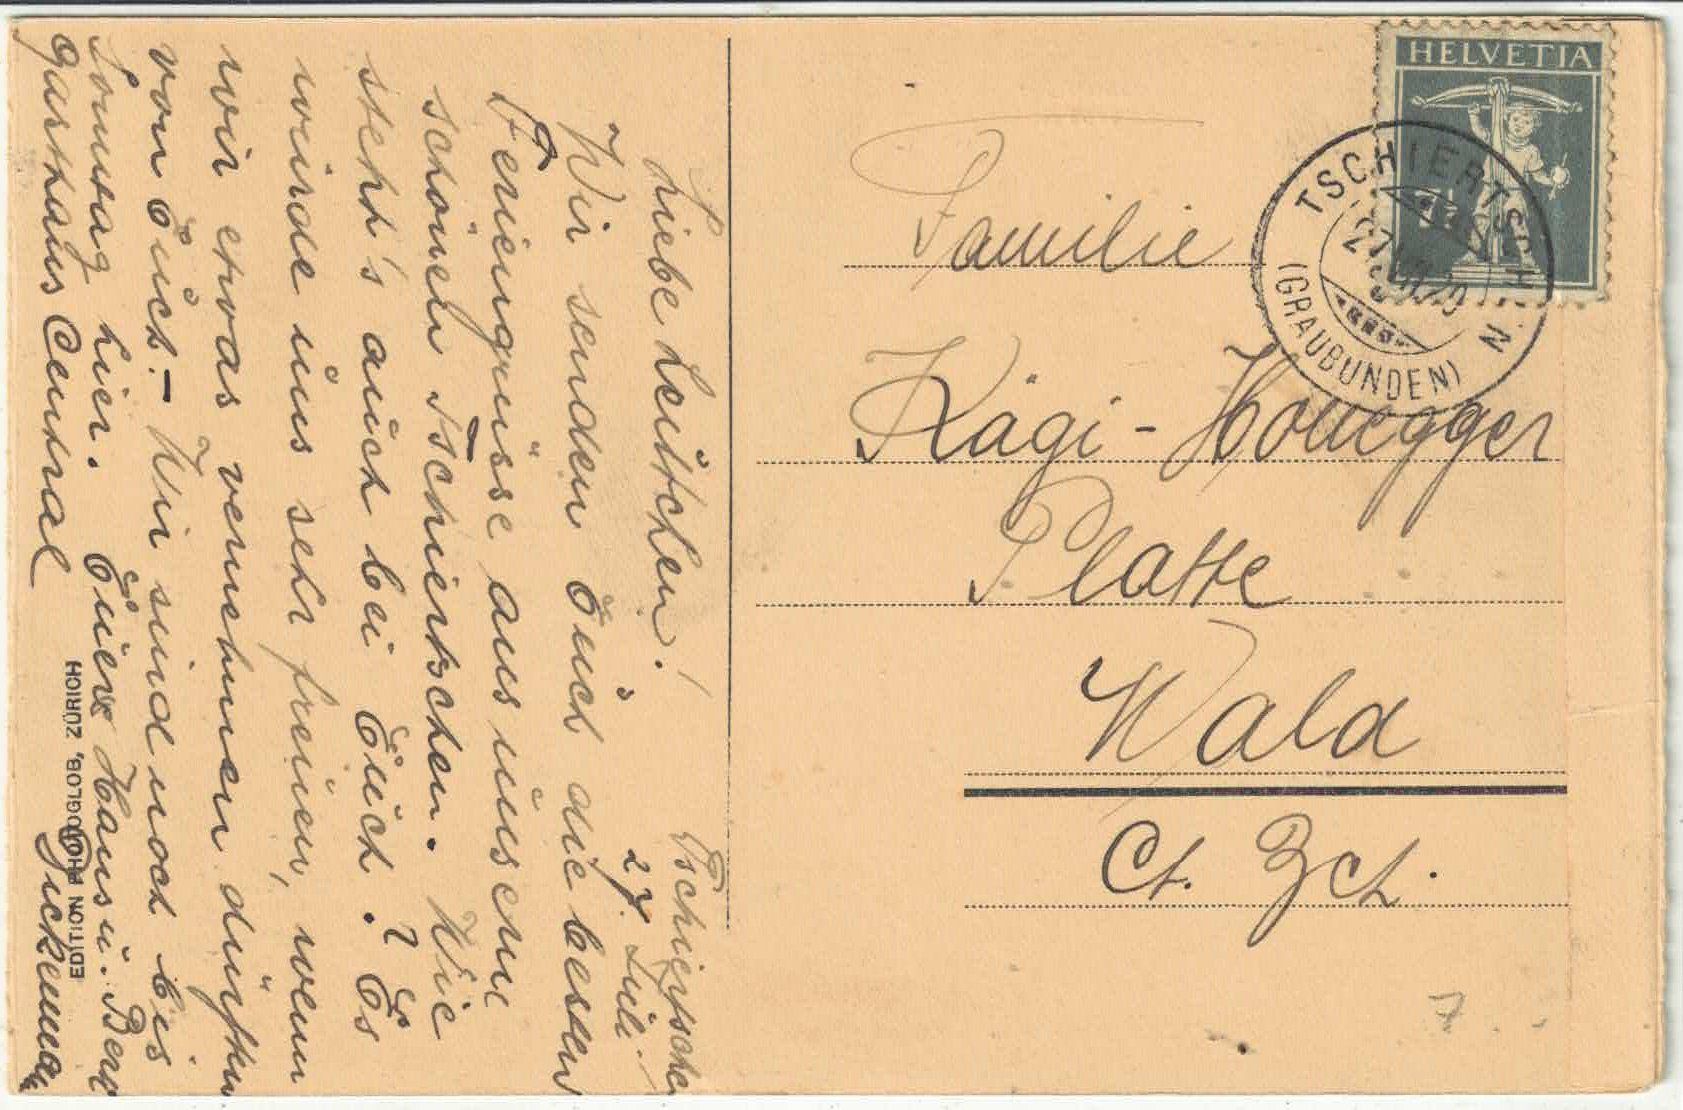 Tschiertschen
27. Juli.
Liebe Leutchen!
Wir senden Euch die besten
Feriengrüsse aus unserm
schönen Tschiertschen. Wie
steht's auch bei Euch? Es
würde uns sehr freuen, wenn
wir etwas vernehmen dürften
von Euch. - Wir sind noch bis
Sonntag hier. Eure Hans u. Berg
Gasthaus Central
EDITION PHOTOGLOB, ZÜRICH
HELVETIA
TSCHIERTSCHEN
(GRAUBÜNDEN)
Familie
Kägi-Honegger
Platte
Wald
Ct. Zch.
7